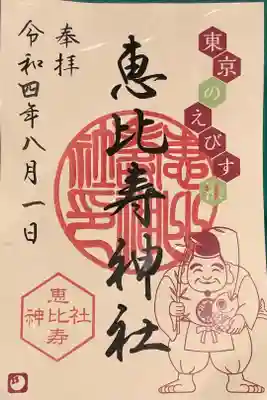 東京のえびす社
奉拝
恵比寿神社
令和四年八月一日
恵比寿
神社